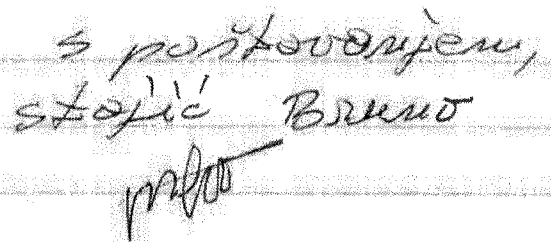 s poštovanjem,
stojić Bruno